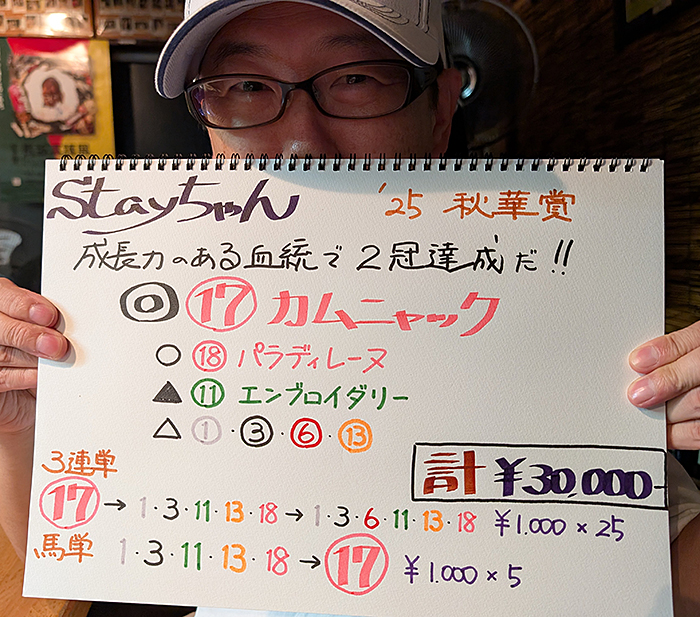 Stayちゃん '25 秋華賞
成長力のある血統で2冠達成だ!!
◎⑰カムニャック
○⑱パラディレーヌ
▲⑪エンブロイダリー
△①・③・⑥・⑬
計 ¥30,000-
3連単
⑰→1・3・11・13・18→1・3・6・11・13・18 ¥1.000×25
馬単 1・3・11・13・18→⑰ ¥1.000×5